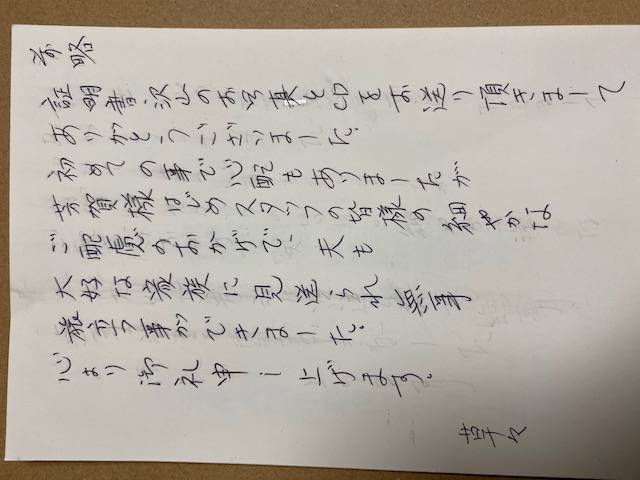 前略
証明書沢山のお写真とCDをお送り頂きまして
ありがとうございました。
初めての事で心配もありましたが
芳賀様はじめスタッフの皆様の細やかな
ご配慮のおかげで、夫も
大好な家族に見送られ無事
旅立つ事ができました。
心より御礼申し上げます。
草々